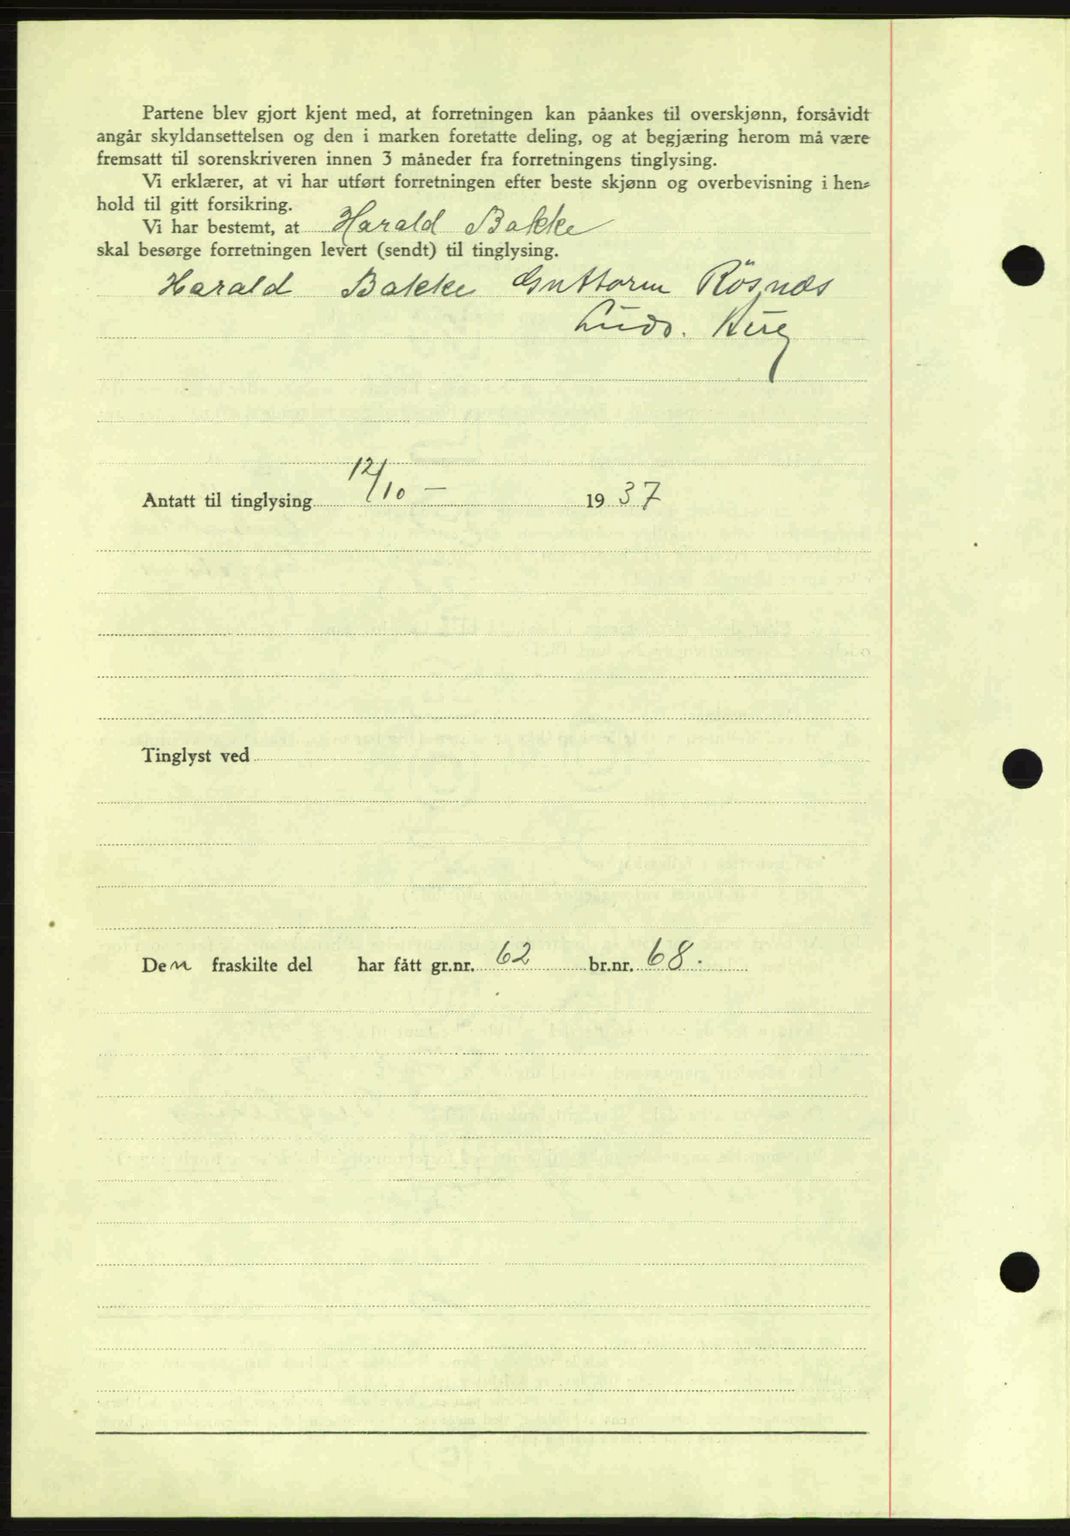 Partene blev gjort kjent med, at forretningen kan påankes til overskjønn, forsåvidt
angår skyldansettelsen og den i marken foretatte deling, og at begjæring herom må være
fremsatt til sorenskriveren innen 3 måneder fra forretningens tinglysing.
Vi erklærer, at vi har utført forretningen efter beste skjønn og overbevisning i hen-
hold til gitt forsikring.
Vi har bestemt, at Harald Bakke
skal besørge forretningen levert (sendt) til tinglysing.
Harald Bakke Guttorm Rösnæs
Ludv.
Antatt til tinglysing 12/10 – 1937
Tinglyst ved
Den fraskilte del har fått gr.nr. 62 br.nr. 68.